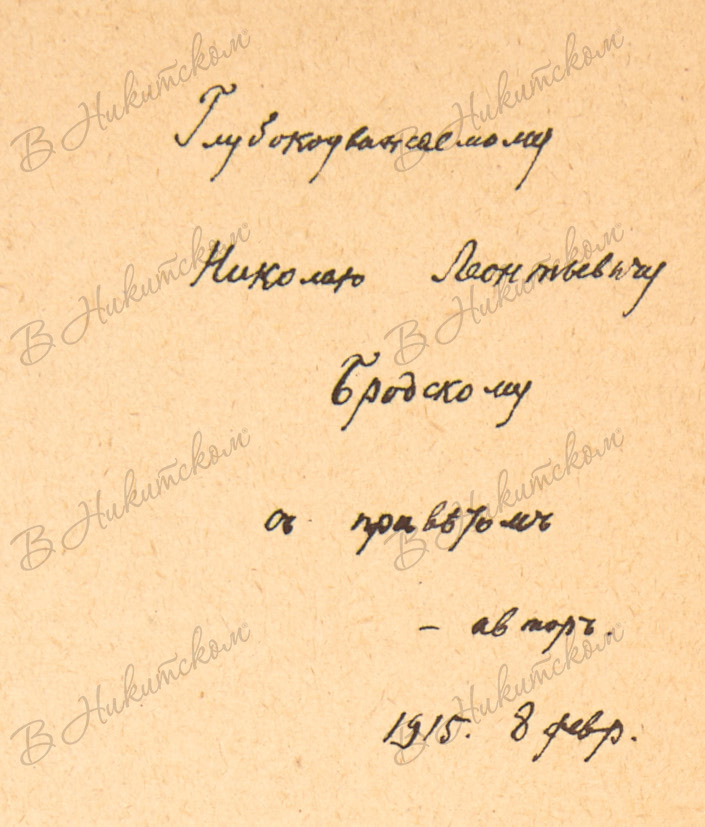 Глубокоуважаемому
Николаю Леонтьевичу
Бродскому
съ привѣтомъ
– авторъ.
1915. 8 февр.
В Никитском
В Никитском
В Никитском
В Никитском
В Никитском
В Никитском
В Никитском
В Никитском